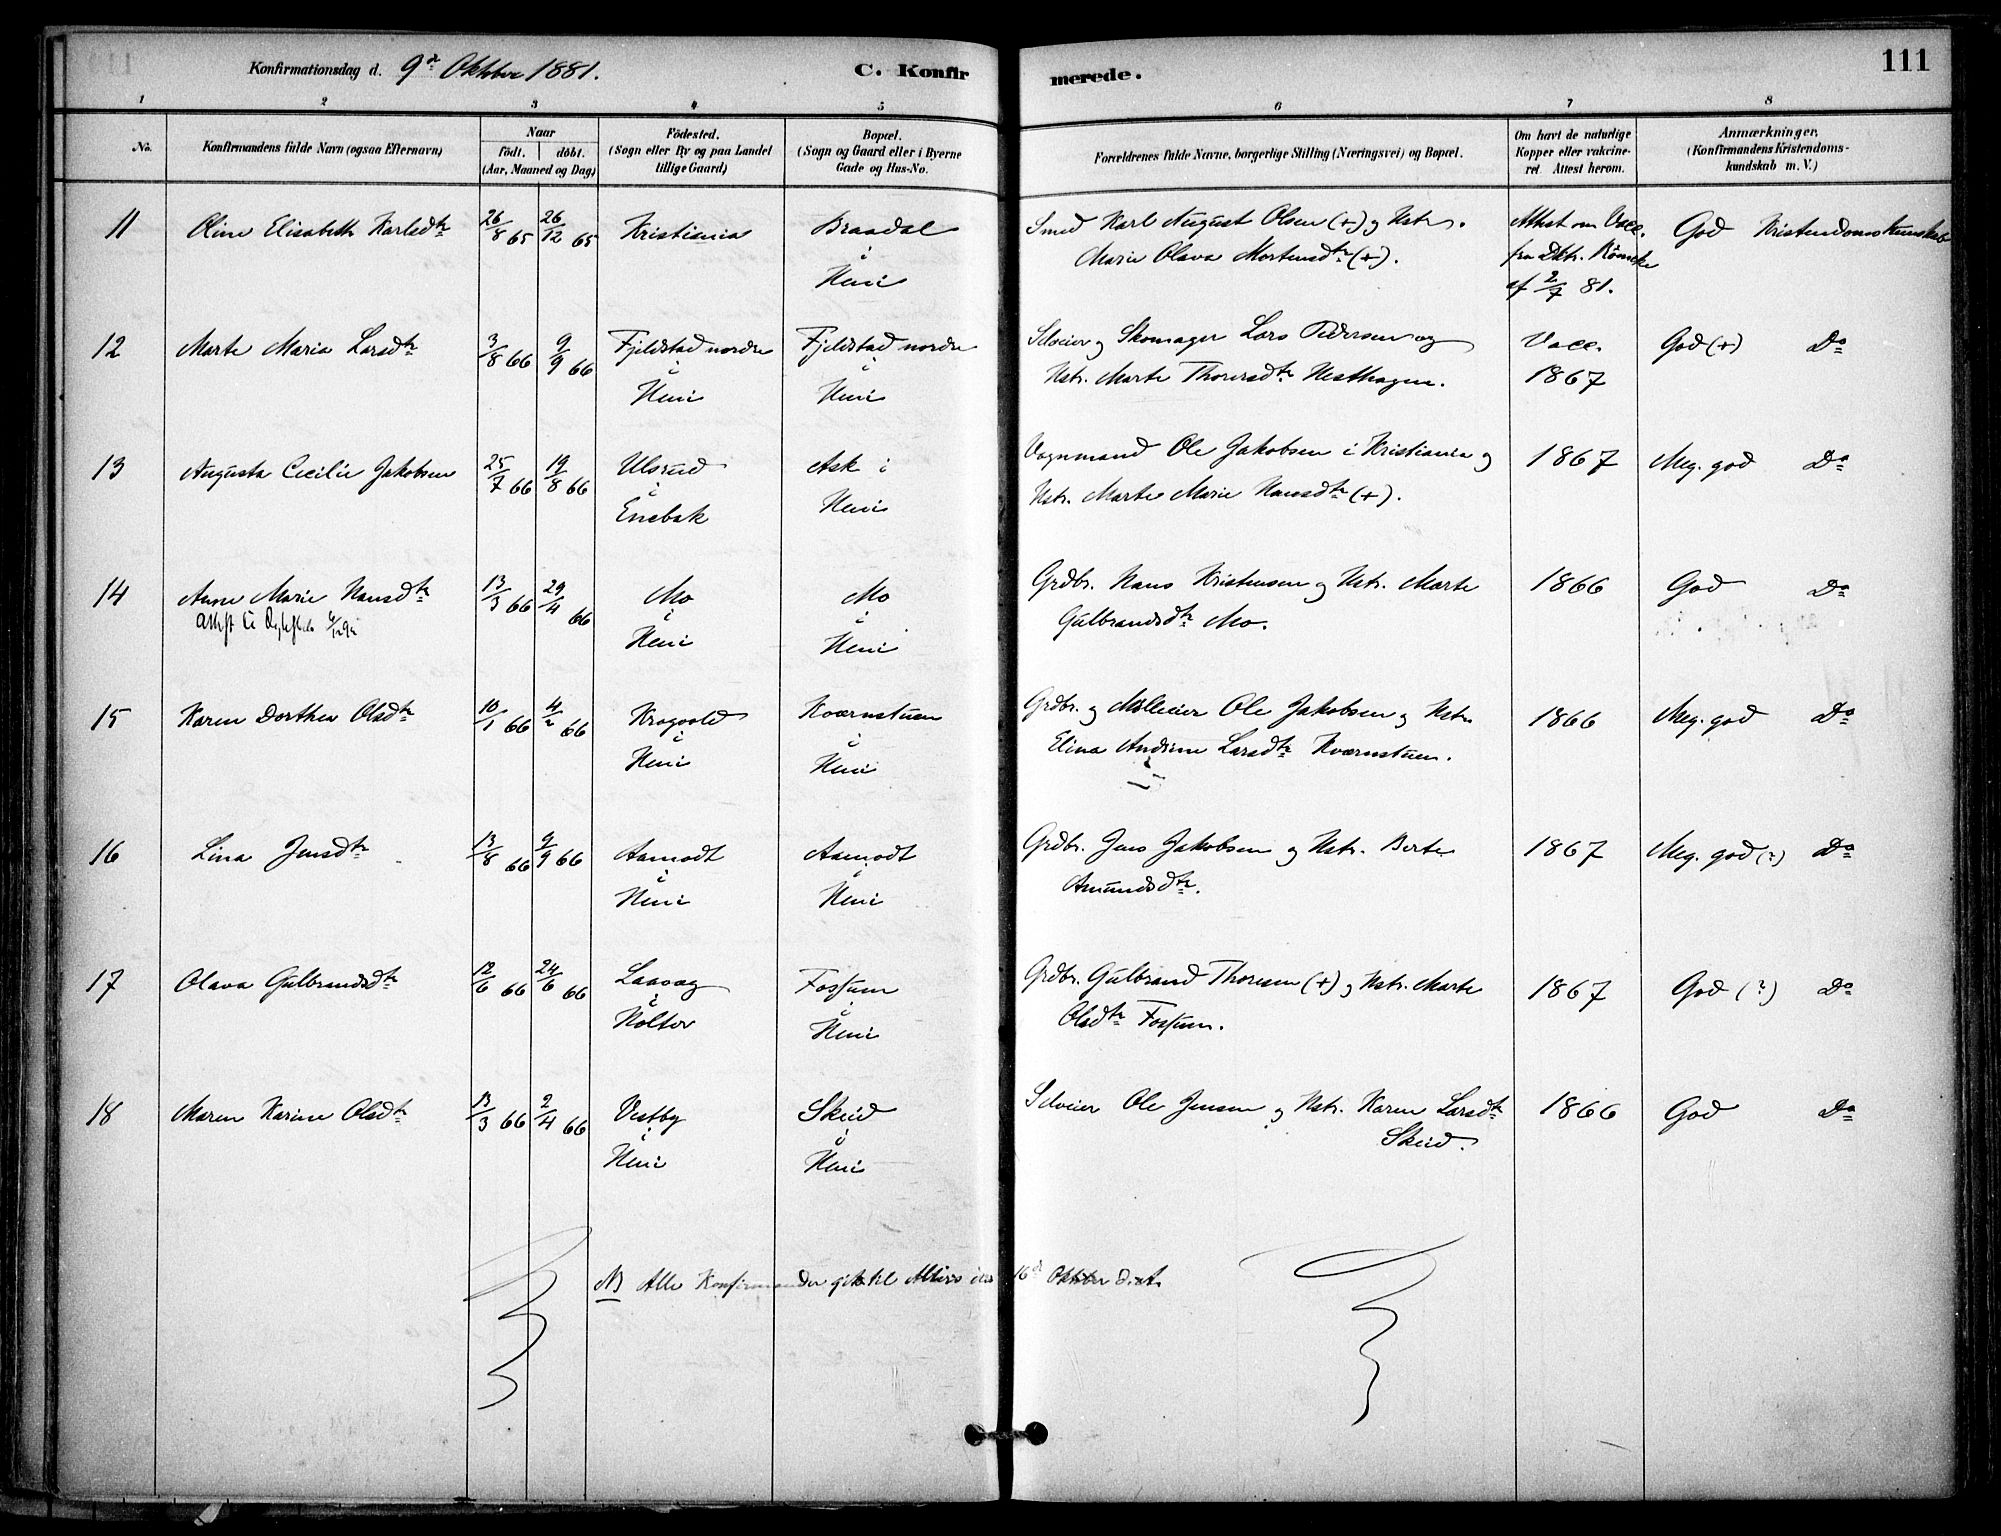 Konfirmationsdag d. 9de Oktober 1881. C. Konfirmerede. 111
1 2 3 4 5 6 7 8
No. Konfirmandens fulde Navn (ogsaa Efternavn) Naar födt. döbt. (Aar, Maaned og Dag) Födested. (Sogn eller By og paa Landet tillige Gaard) Bopæl. (Sogn og Gaard eller i Byerne Gade og Hus-No. Forældrenes fulde Navne, borgerlige Stilling (Næringsvei) og Bopæl. Om havt de naturlige Kopper eller vakcineret. Attest herom. Anmærkninger. (Konfirmandens Kristendomskundskab m. V.)
11 Oline Elisabeth Karlsdtr 26/8 65 26/12 65 Kristiania Braadal i Heni Smed Karl August Olsen (+) og Hstr. Marie Olava Mortensdtr (+). Attest om Vacc. fra Dktr. af 2/7 81. God Kristendomskundskab
12 Marte Maria Larsdtr 3/8 66 9/9 66 Fjeldstad nordre i Heni Fjeldstad nordre i Heni Selveier og Skomager Lars Pedersen og Hstr. Marte Thorersdtr Hesthagen. Vacc. 1867 God (+) Do
13 Augusta Cecilie Jakobsen 25/7 66 19/8 66 Ulsrud i Enebak Ask i Heni Vognmand Ole Jakobsen i Kristiania og Hstr. Marte Marie Hansdtr (+). 1867 Meg. god Do
14 Anne Marie Hansdtr 13/3 66 29/4 66 Mo i Heni Mo i Heni Grdbr. Hans Kristensen og Hstr. Marte Gulbrandsdtr Mo. 1866 God Do
15 Karen Dorthea Olsdtr 10/1 66 4/2 66 Krogvold i Heni Kværnstuen i Heni Grdbr. og Mølleeier Ole Jakobsen og Hstr. Elina Andrine Larsdtr Kværnstuen. 1866 Meg. god Do
16 Lina Jensdtr 13/8 66 9/9 66 Aamodt i Heni Aamodt i Heni Grdbr. Jens Jakobsen og Hstr. Berte Amundsdtr. 1867 Meg. god (?) Do
17 Olava Gulbrandsdtr 12/6 66 24/6 66 Laavag i Holter Fossum i Heni Grdbr. Gulbrand Thoresen (+) og Hstr. Marte Olsdtr Fossum. 1867 God (?) Do
18 Maren Karine Olsdtr 13/3 66 2/4 66 Vestby i Heni Skeid i Heni Selveier Ole Jensen og Hstr. Karen Larsdtr Skeid. 1866 God Do
NB Alle Konfirmander gik til Alters den 16de Oktober d. A.